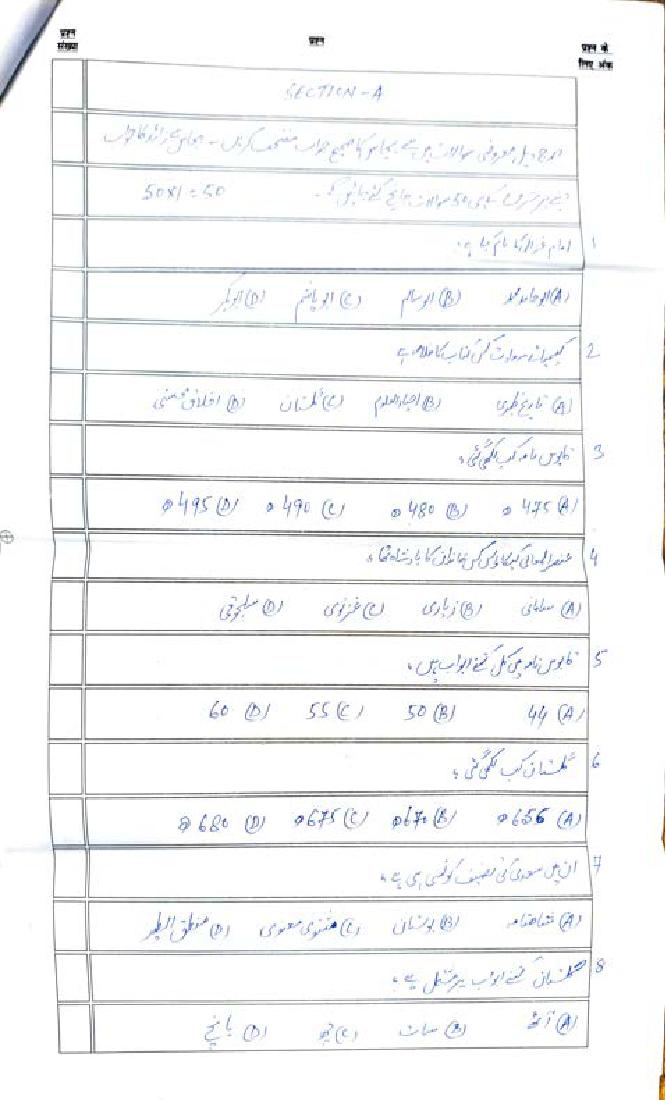 प्रश्न संख्या
प्रश्न
प्रश्न के लिए अंक
SECTION-A
درج ذیل معروضی سوالات میں سے پچاس کا صحیح جواب منتخب کریں۔ پچاس سے زائد کا جواب
دینے پر صرف پہلے 50 سوالات جانچے جائیں گے۔ 50x1=50
1 امام غزالی کا نام کیا ہے؟
(A) ابو حامد محمد (B) ابو سالم (C) ابو ہاشم (D) ابوبکر
2 کیمیائے سعادت کس کتاب کا خلاصہ ہے
(A) تاریخ طبری (B) احیاء العلوم (C) گلستان (D) اخلاق محسنی
3 قابوس نامہ کب لکھی گئی؟
(A) 475ھ (B) 480ھ (C) 490ھ (D) 495ھ
4 عنصر المعالی کیکاؤس کس خاندان کا بادشاہ تھا؟
(A) سامانی (B) زیاری (C) غزنوی (D) سلجوقی
5 قابوس نامہ میں کل کتنے ابواب ہیں؟
(A) 44 (B) 50 (C) 55 (D) 60
6 گلستان کب لکھی گئی؟
(A) 656ھ (B) 670ھ (C) 675ھ (D) 680ھ
7 ان میں سعدی کی تصنیف کونسی ہے؟
(A) شاهنامہ (B) بوستان (C) مثنوی معنوی (D) منطق الطیر
8 گلستان کتنے ابواب پر مشتمل ہے؟
(A) آٹھ (B) سات (C) چھ (D) پانچ